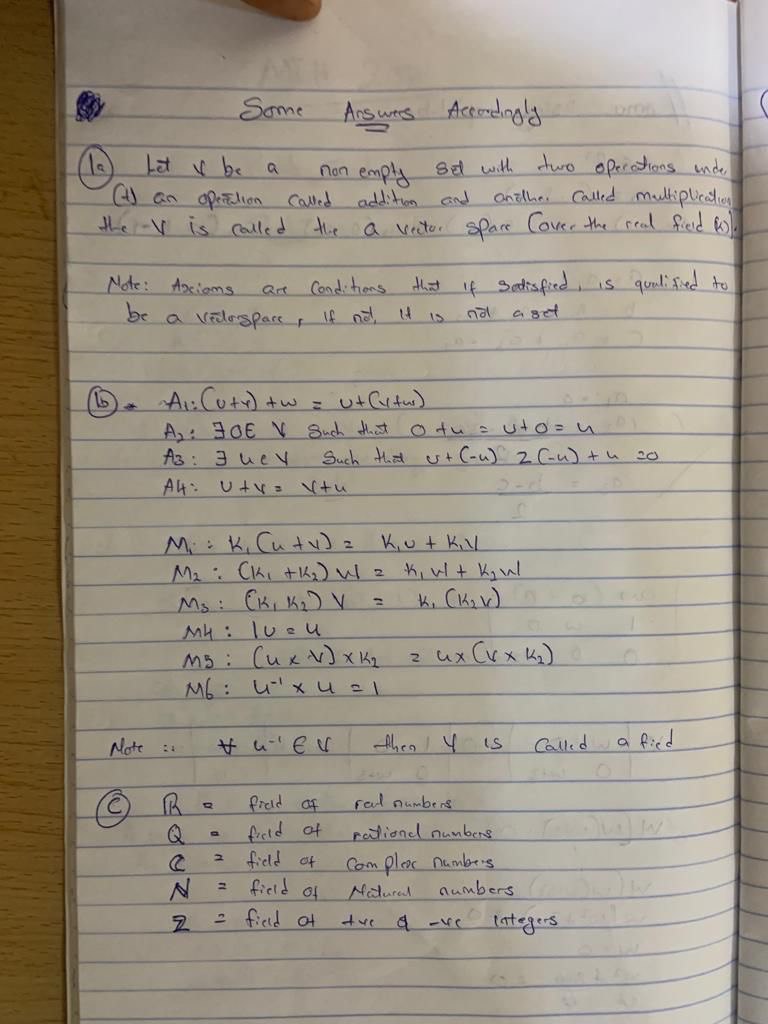 Some Answers Accordingly
1a Let V be a non empty set with two operations unde
(+) an operation called addition and another called multiplication
the V is called the a vector space (over the real field (R).
Note: Axioms are conditions that if satisfied, is qualified to
be a vectorspace, if not, it is not a set
1b A1: (u+v) + w = u+(v+w)
A2: ∃ 0 ∈ V such that 0 + u = u + 0 = u
A3: ∃ u ∈ V such that u + (-u) = (-u) + u = 0
A4: u + v = v + u
M1: K1 (u + v) = K1u + K1v
M2: (K1 + K2) W = K1W + K2W
M3: (K1 K2) V = K1 (K2V)
M4: 1u = u
M5: (u x v) x K2 = u x (v x K2)
M6: u⁻¹ x u = 1
Note :: ∀ u⁻¹ ∈ V then V is called a field
C R = field of real numbers
Q = field of rational numbers
C = field of complex numbers
N = field of Natural numbers
Z = field of +ve & -ve integers